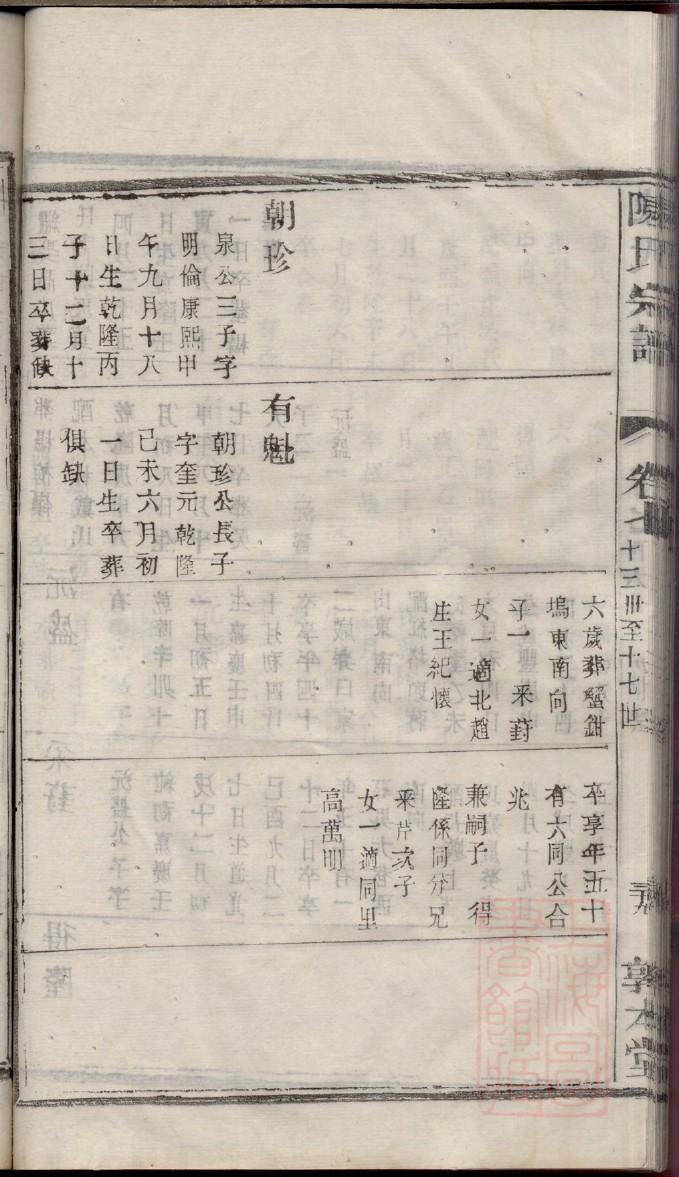 陳氏宗譜
卷七
十三世至十七世
敦本堂
朝珍
泉公三子字
明倫康熙甲
午九月十八
日生乾隆丙
子十二月十
三日卒葬缺
有魁
朝珍公長子
字奎元乾隆
己未六月初
一日生卒葬
俱缺
六歲葬蟹鉗
塢東南向
子一 采葑
女一適北趙
庄王紀懷
卒享年五十
有六同公合
兆
兼嗣子 得
隆係同分兄
采芹次子
女一適同里
高萬明
上海圖書館藏